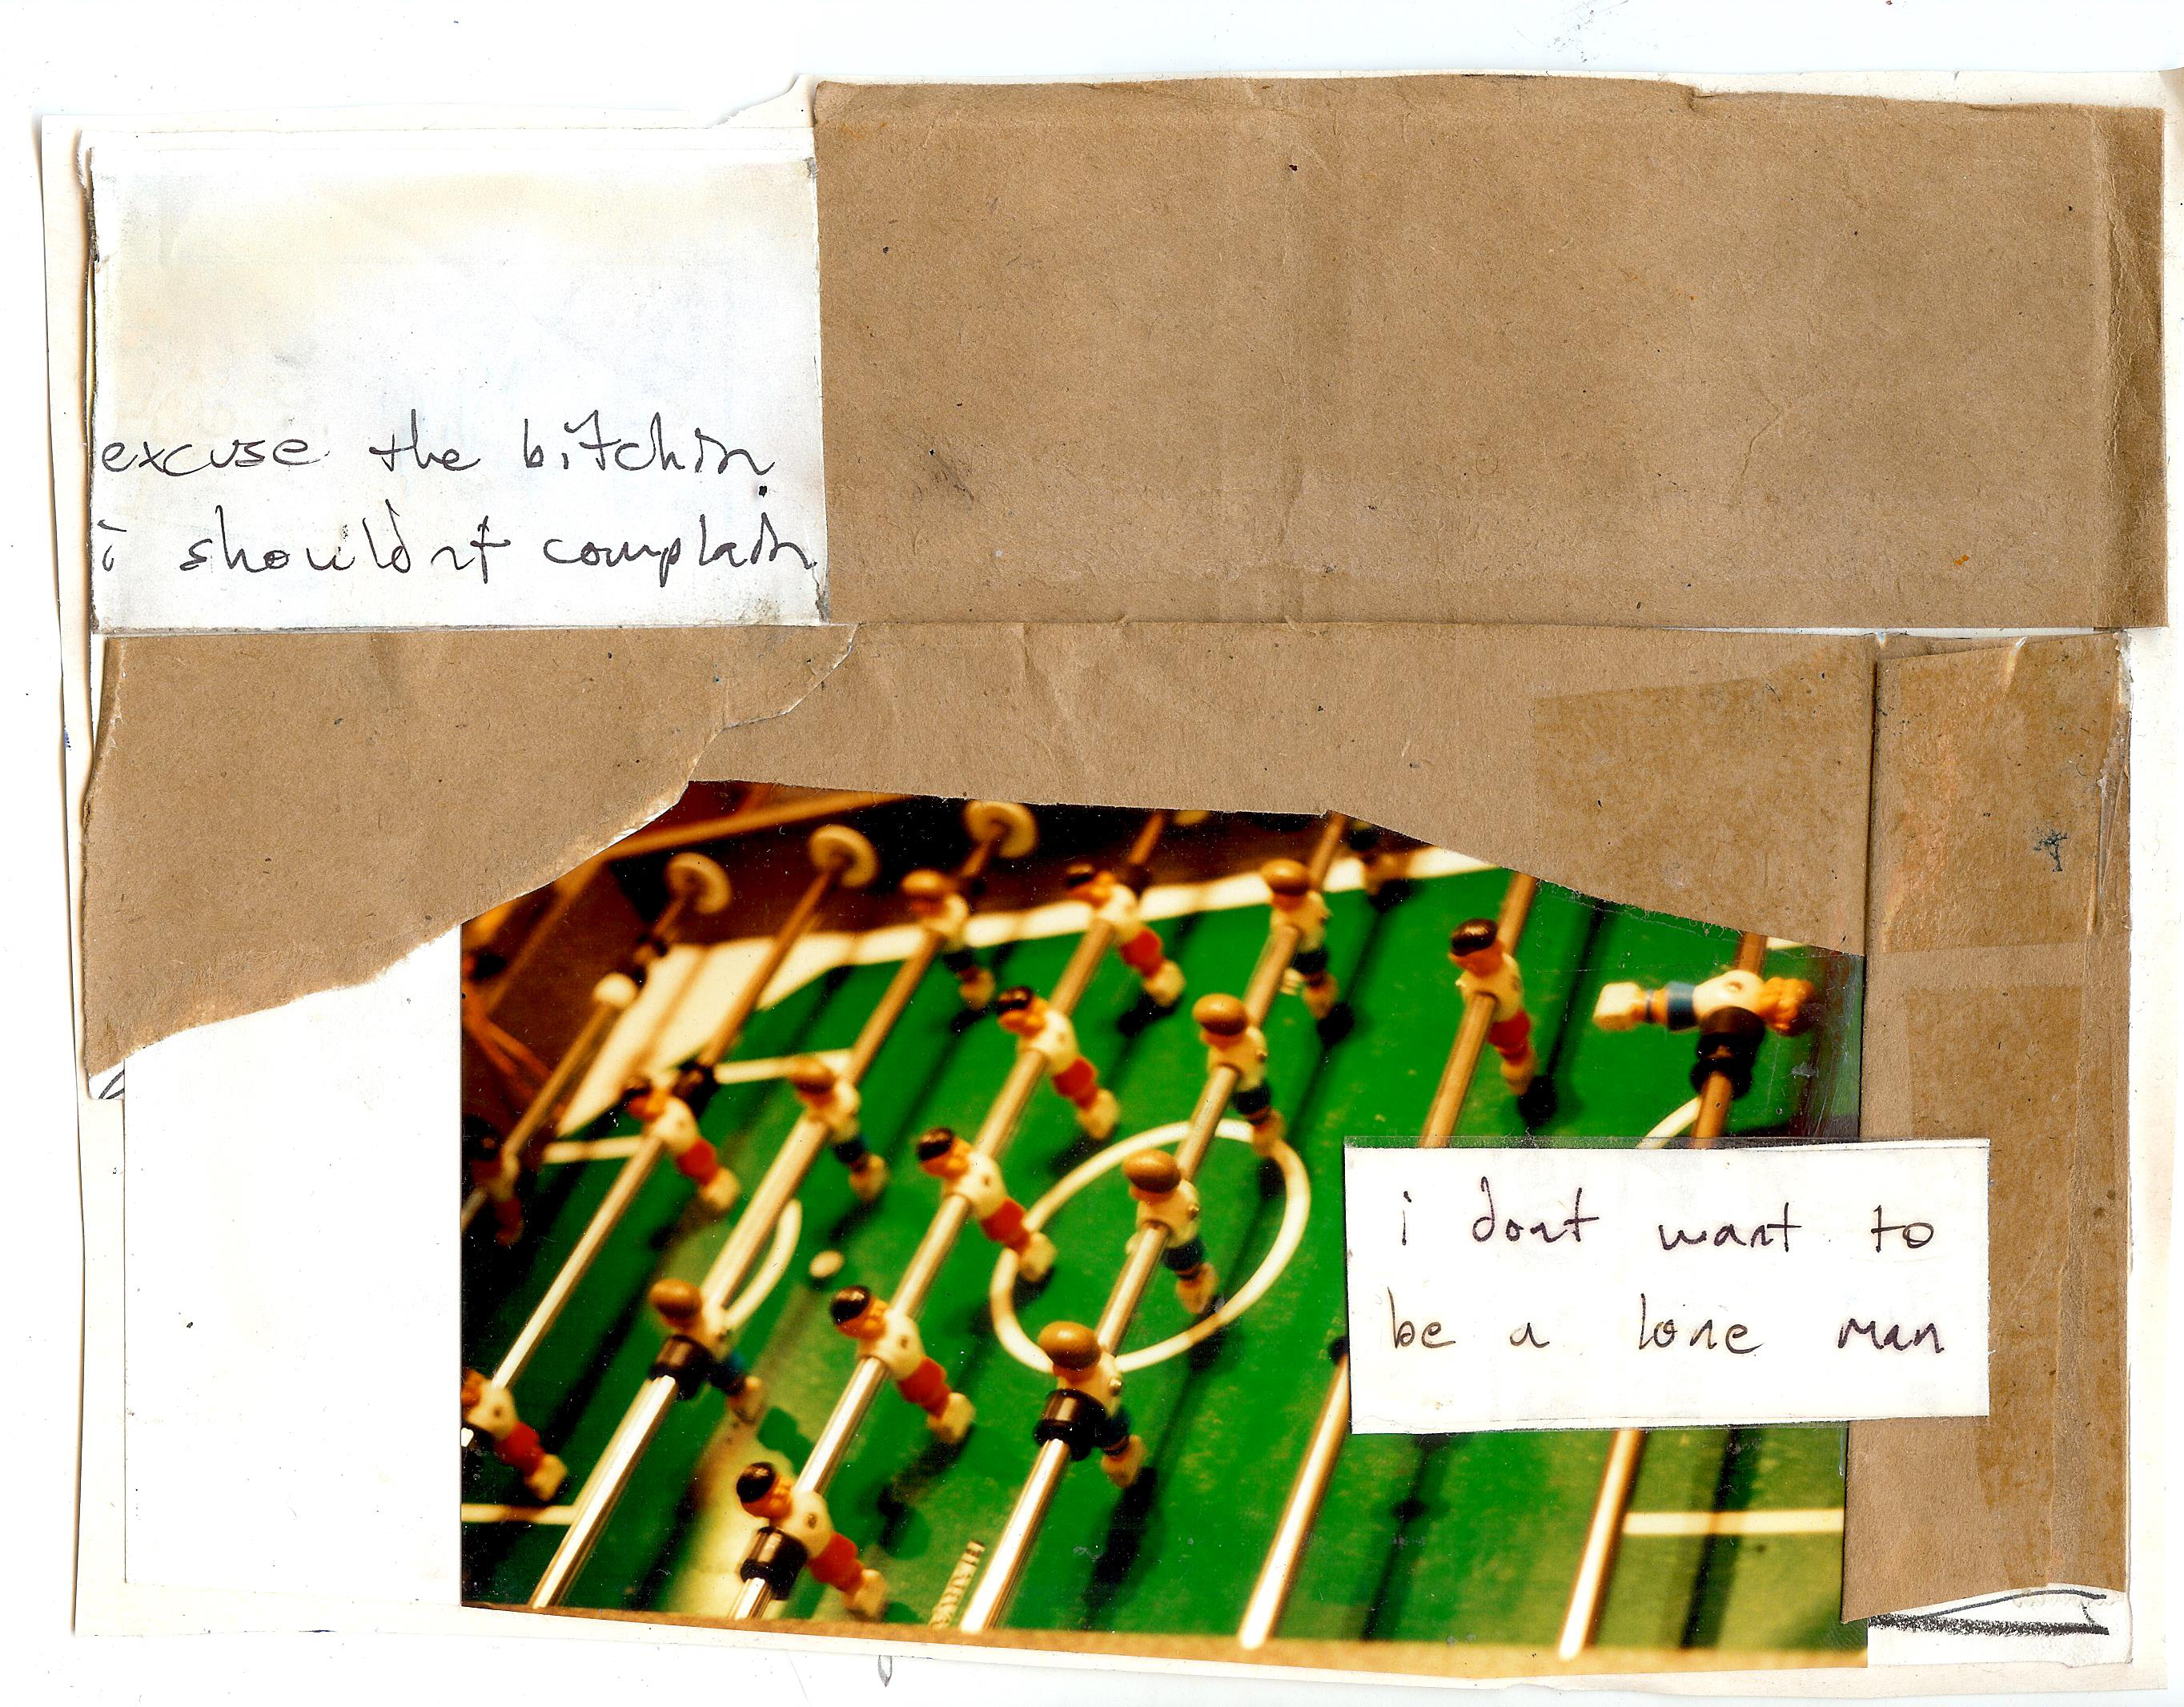 excuse the bitchin
i shouldn't complain
i dont want to
be a lone man